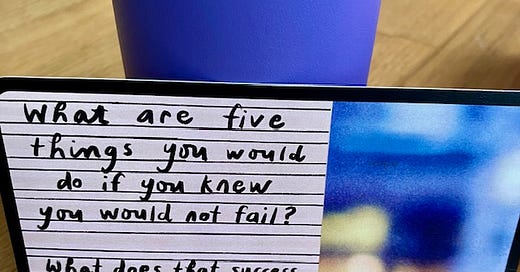 What are five
things you would
do if you knew
you would not fail?
What does that success